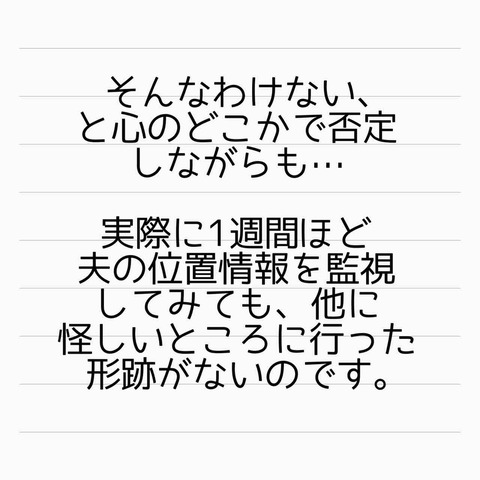 そんなわけない、
と心のどこかで否定
しながらも…
実際に1週間ほど
夫の位置情報を監視
してみても、他に
怪しいところに行った
形跡がないのです。